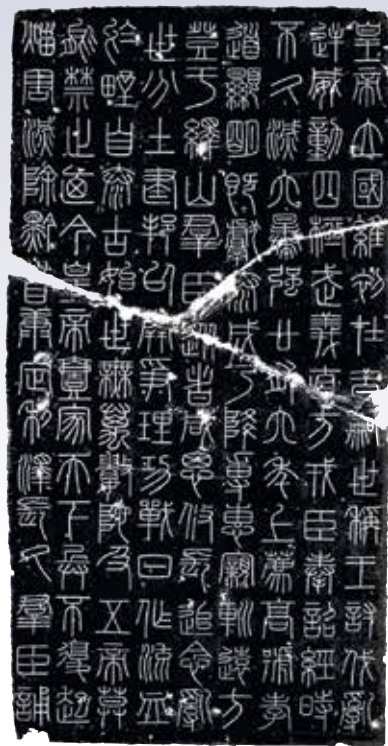 皇帝立國維初在昔嗣世稱王討伐亂
逆威動四極武義直方戎臣奉詔經時
不久滅六暴強廿有六年上薦高號孝
道顯明既獻泰成乃降尃惠寴巡遠方
登于繹山羣臣從者咸思攸長追念亂
世分土建邦以開爭理功戰日作流血
於野自泰古始世無萬數陀及五帝莫
能禁止迺今皇帝壹家天下兵不復起
烖害滅除黔首康定利澤長久羣臣誦